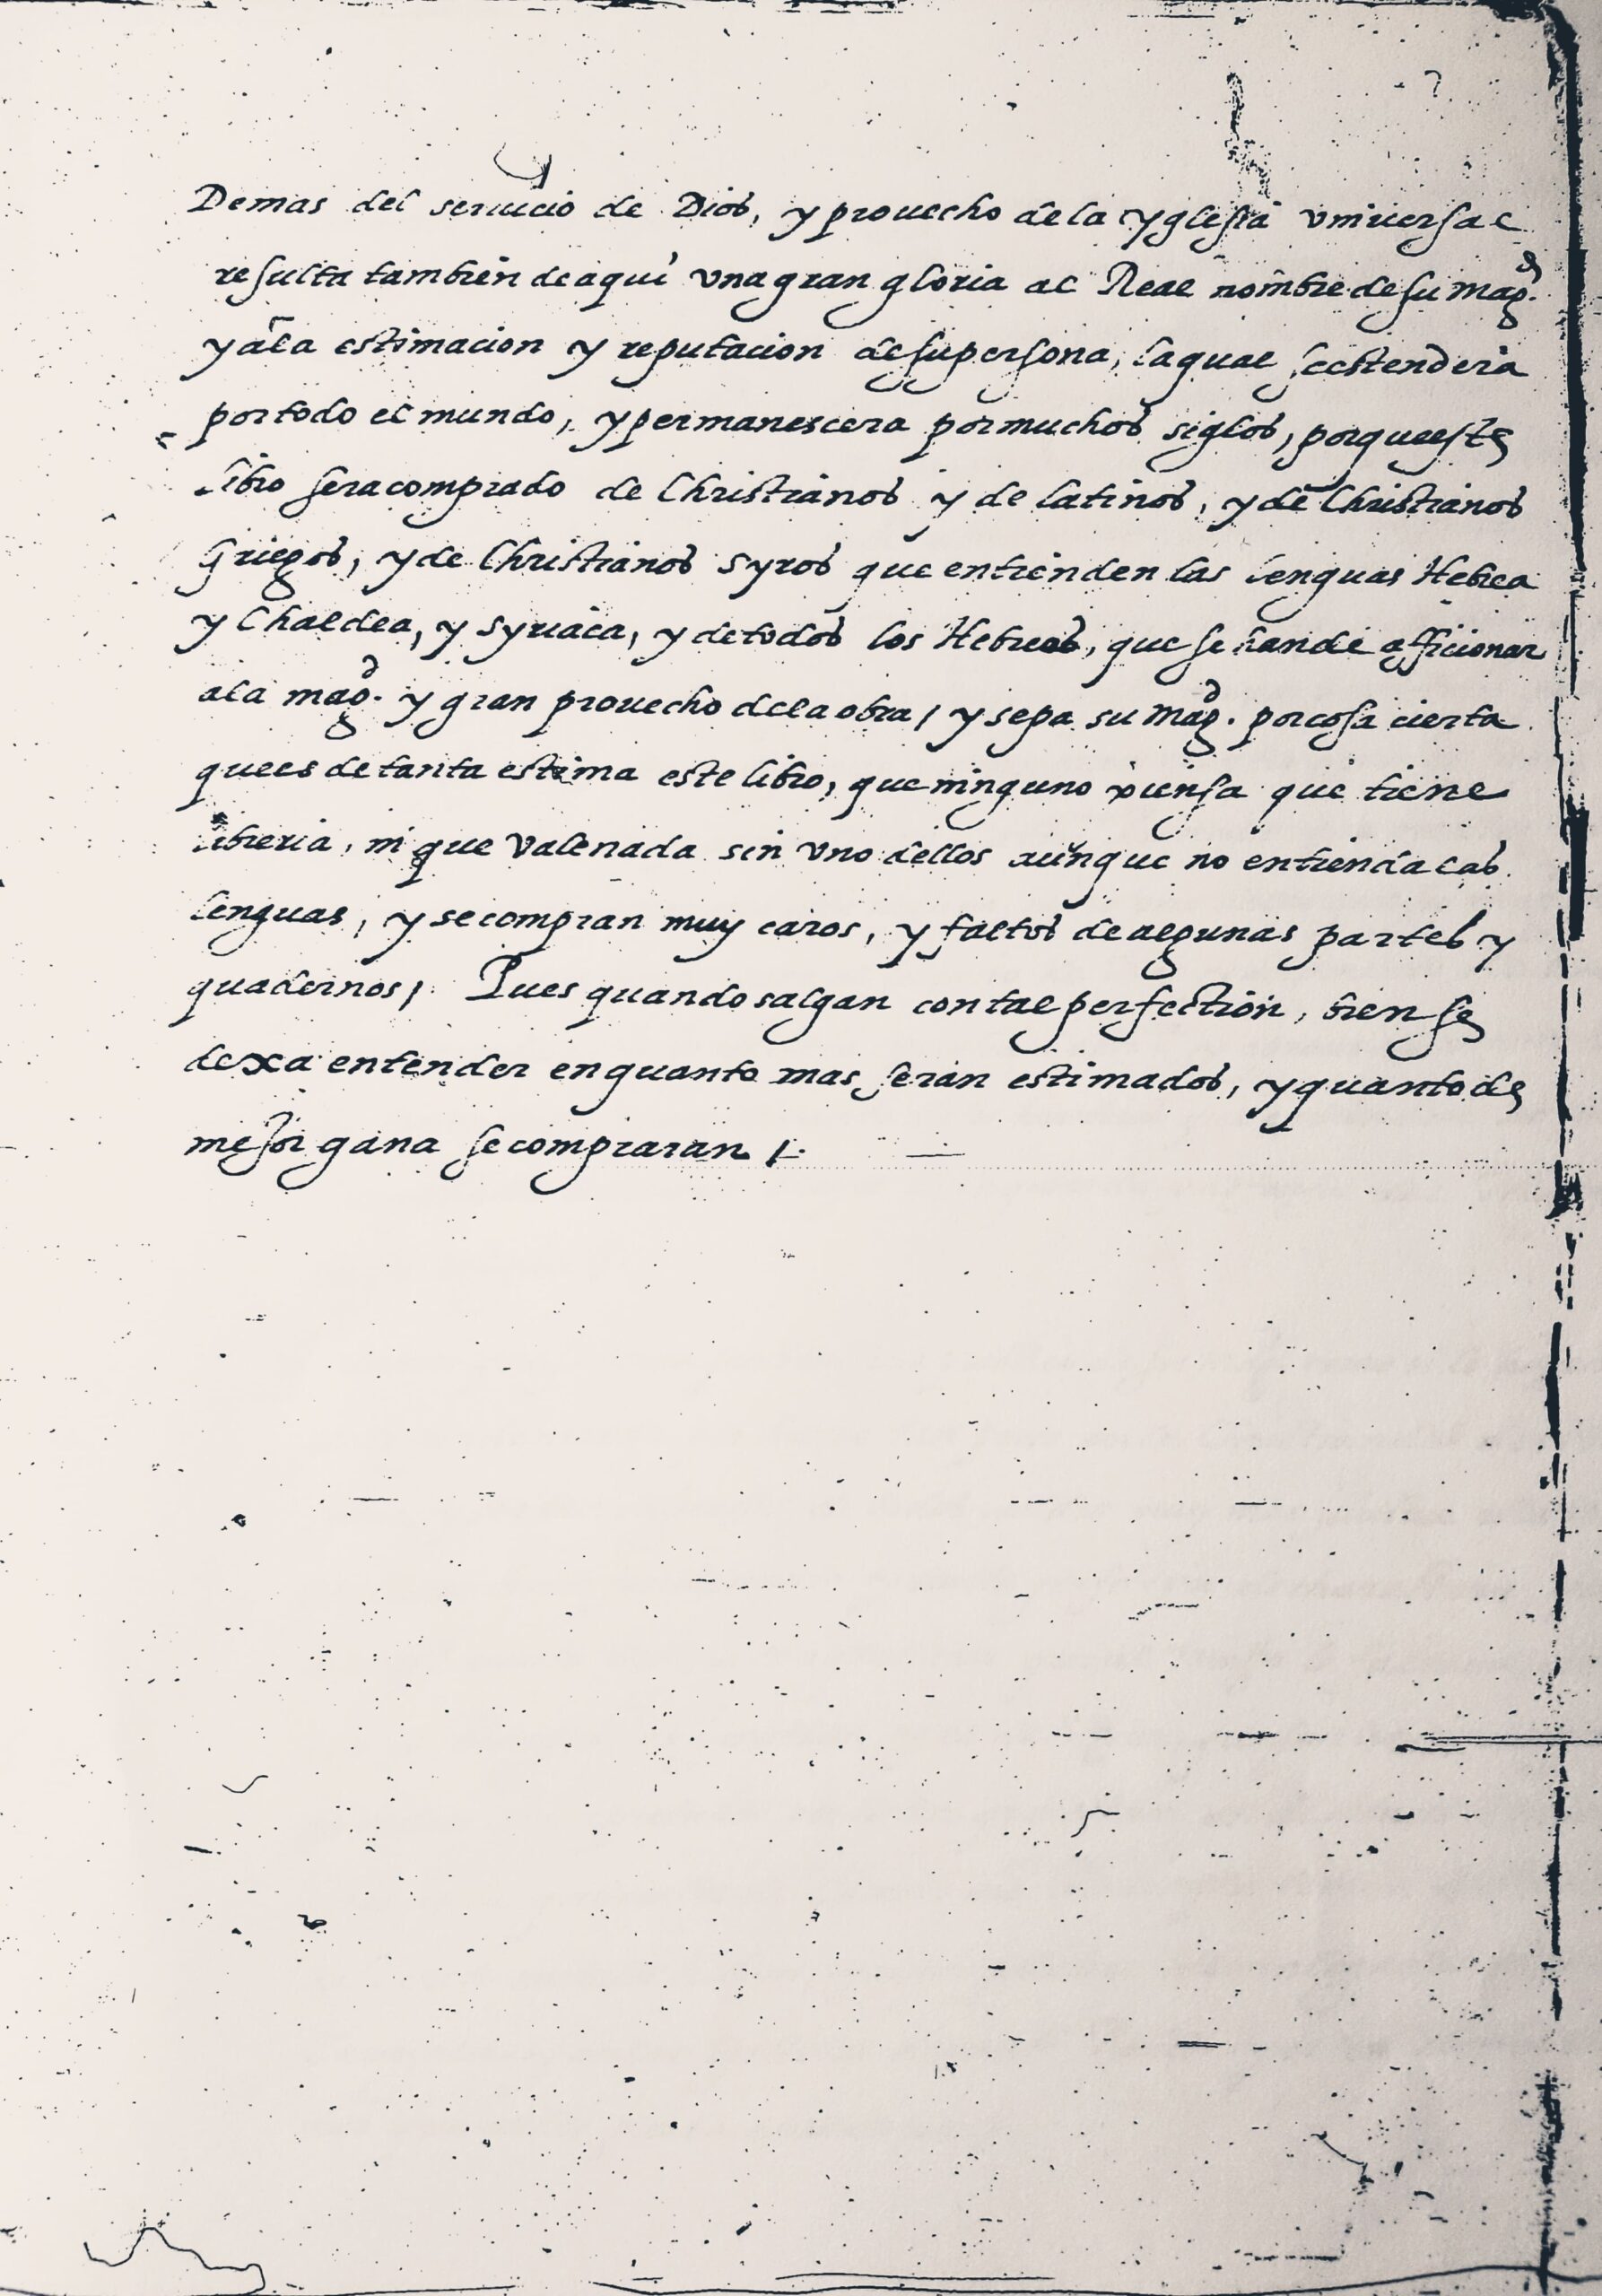 Demas del seruicio de Dios, y prouecho de la yglesia vniuersal
resulta tambien de aqui vna gran gloria al Real nombre de su Magd.
y a la estimacion y reputacion de su persona, la qual se estendera
por todo el mundo, y permanescera por muchos siglos, porque este
libro sera comprado de Christianos y de latinos, y de Christianos
Griegos, y de Christianos Syros que entienden las lenguas Hebrea
y Chaldea, y Syriaca, y de todos los Hebreos, que se han de afficionar
a la magd. y gran prouecho de la obra / y sepa su Magd. por cosa cierta
que es de tanta estima este libro, que ninguno piensa que tiene
libreria, ni que vale nada sin vno dellos aunque no entienda las
lenguas, y se compran muy caros, y faltos de algunas partes y
quadernos /. Pues quando salgan con tal perfection, bien se
dexa entender en quanto mas seran estimados, y quanto de
mejor gana se compraran /.